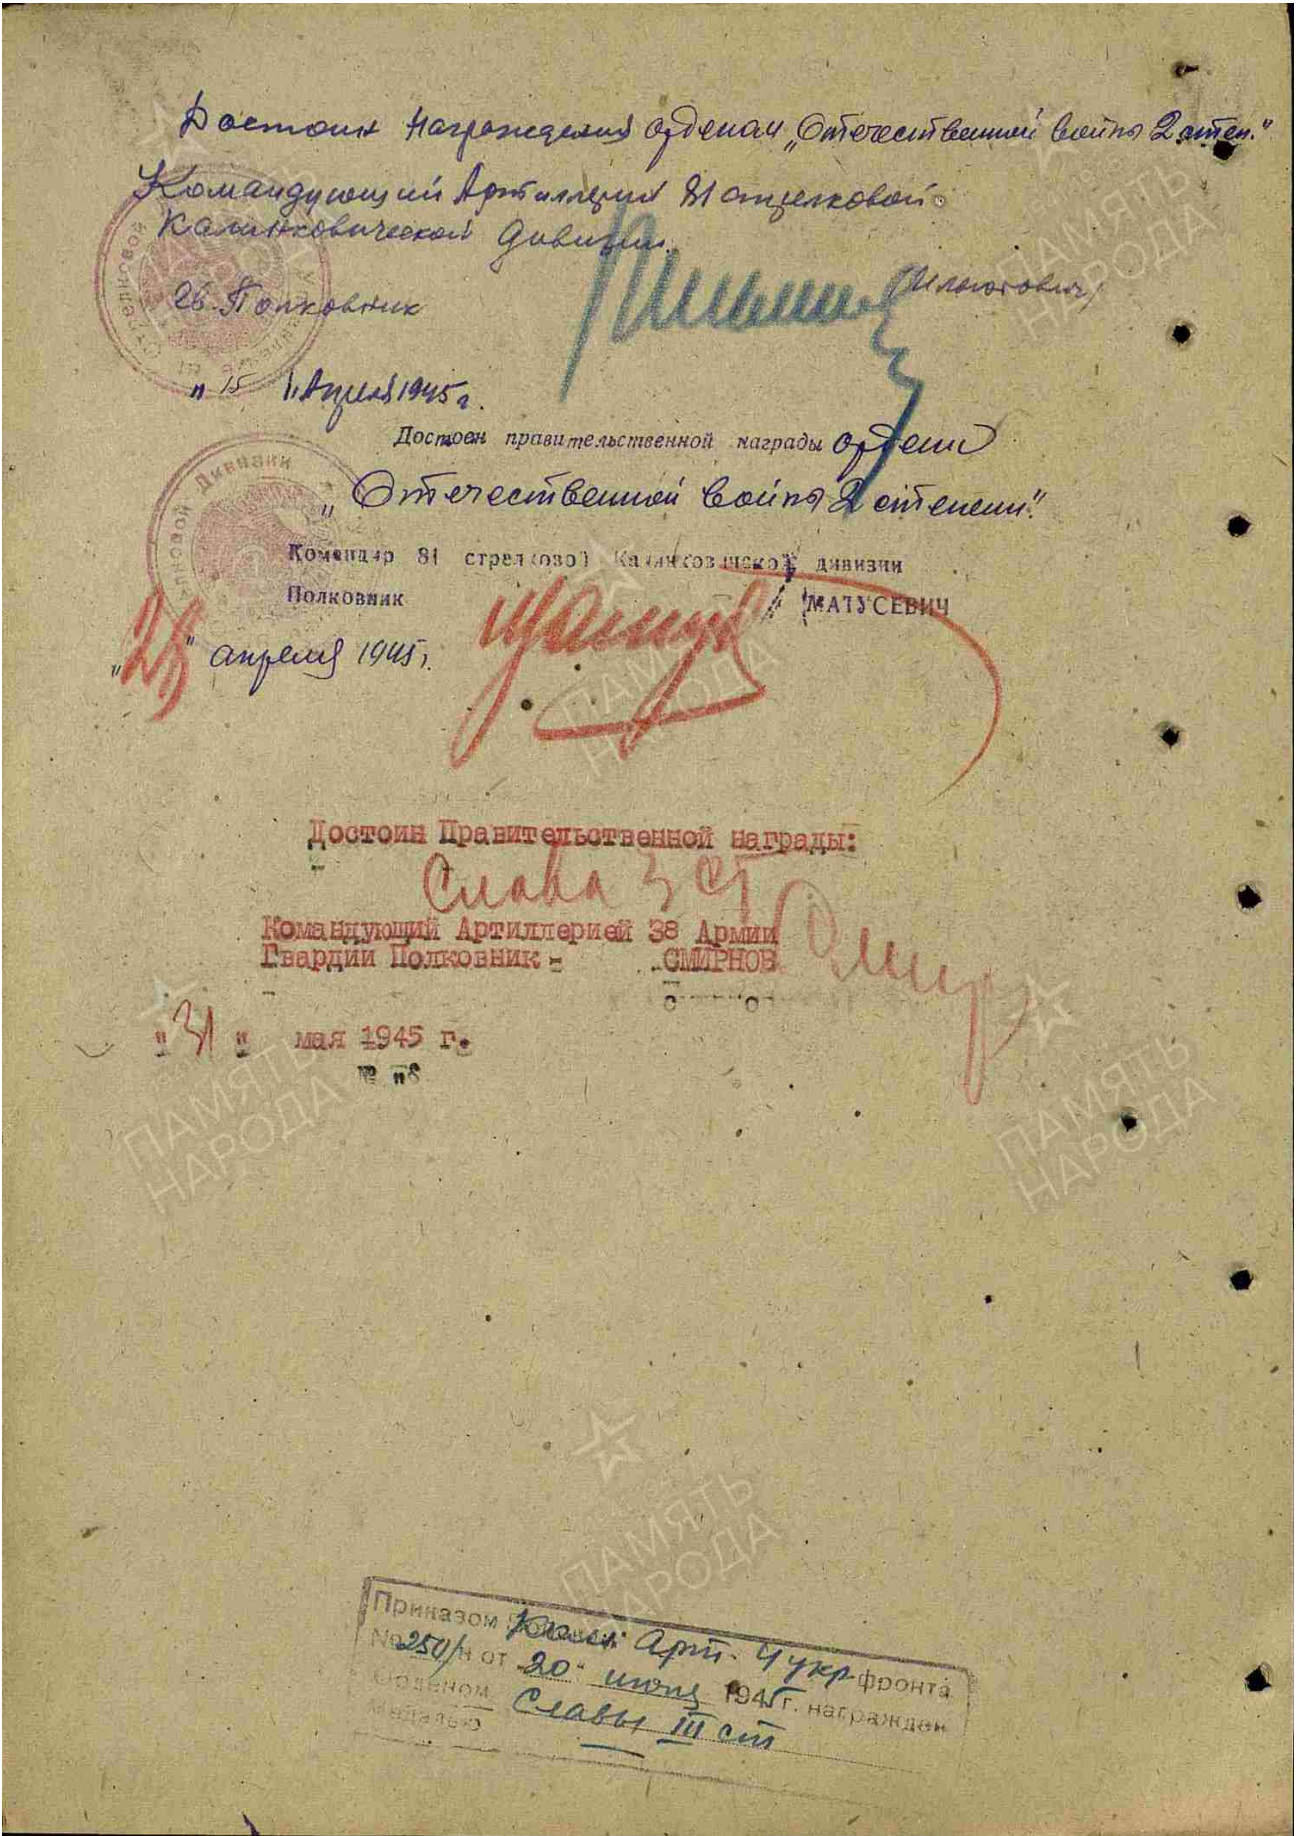 Достоин награждения орденом „Отечественной войны 2 степ."
Командующий Артиллерии 81 стрелковой
Калинковической дивизии
Гв. Полковник
„ 15 " Апреля 1945 г.
Достоен правительственной награды ордени
„Отечественной войны 2 степени".
Командир 81 стрелковой Калинковической дивизии
Полковник / МАТУСЕВИЧ
" " апреля 1945 г.
Достоин Правительственной награды:
Слава 3 ст
Командующий Артиллерией 38 Армии
Гвардии Полковник - СМИРНОВ
"31" мая 1945 г.
Приказом Ком. Арт. 4 укр фронта
№ 250/н от „20" июня 1945 г. награжден
Орденом Славы III ст
Медалью
Стрелковой
Дивизии
ПАМЯТЬ
НАРОДА
ПАМЯТЬ
НАРОДА
ПАМЯТЬ
НАРОДА
ПАМЯТЬ
НАРОДА
ПАМЯТЬ
НАРОДА